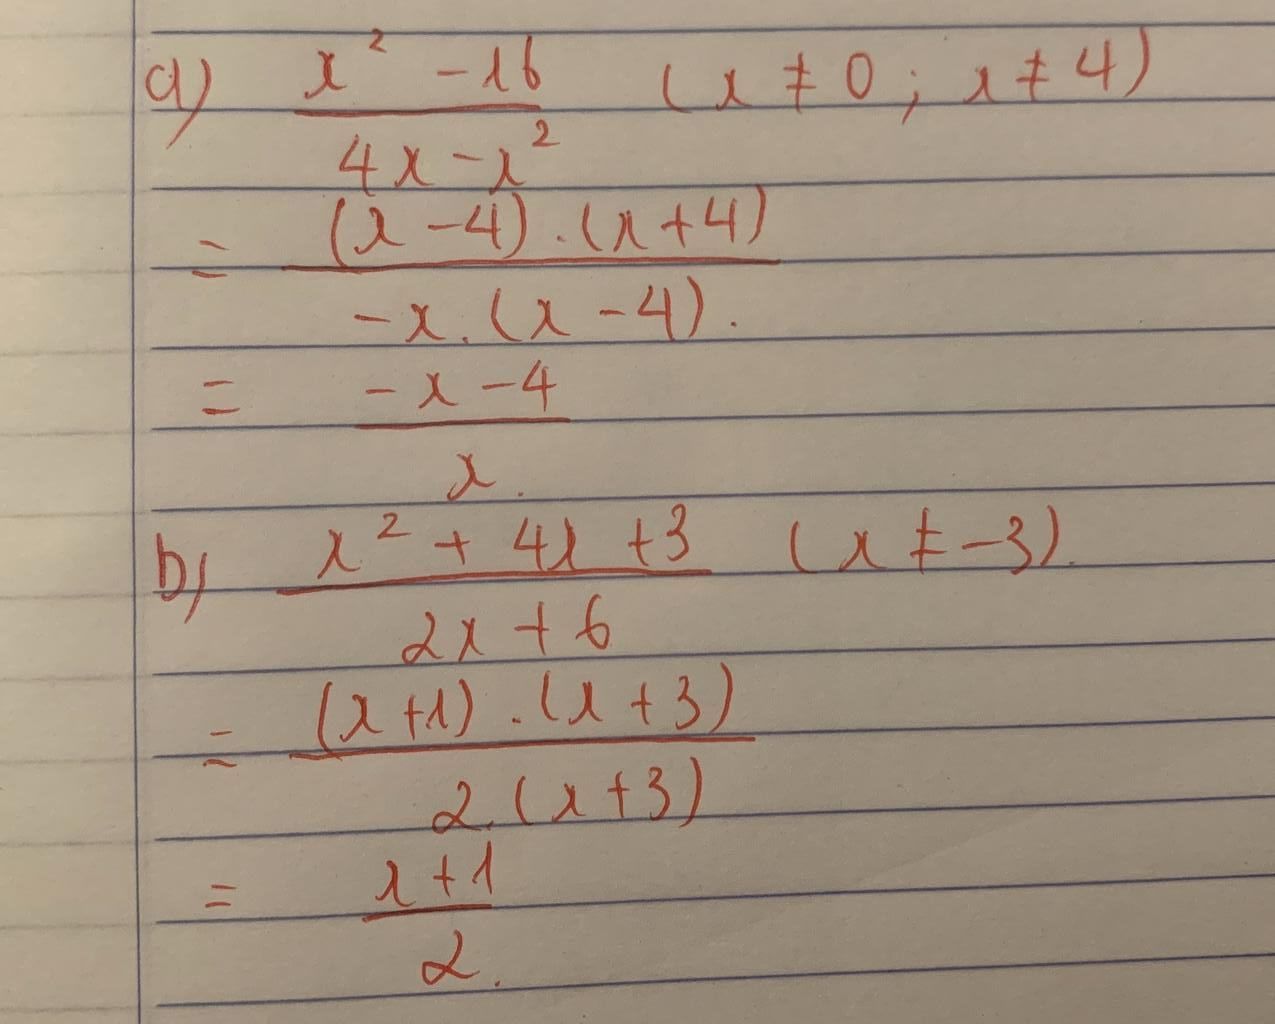 a) \frac{x^2 - 16}{4x - x^2} (x ≠ 0; x ≠ 4)
= \frac{(x - 4) . (x + 4)}{-x . (x - 4).}
= \frac{-x - 4}{x.}
b) \frac{x^2 + 4x + 3}{2x + 6} (x ≠ -3).
= \frac{(x + 1) . (x + 3)}{2. (x + 3)}
= \frac{x + 1}{2.}